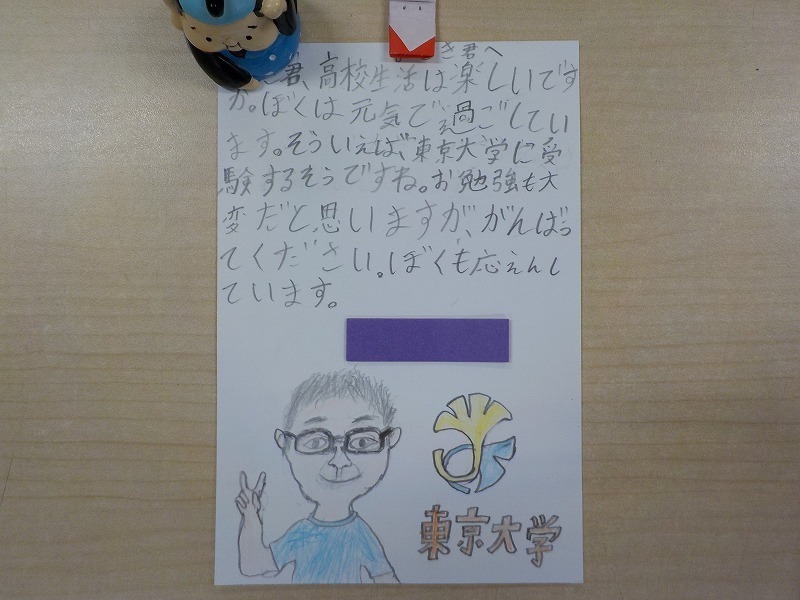 き君へ
君、高校生活は楽しいです
か。ぼくは元気で過ごしてい
ます。そういえば、東京大学に受
験するそうですね。お勉強も大
変だと思いますが、がんばっ
てください。ぼくも応えんし
ています。
東京大学